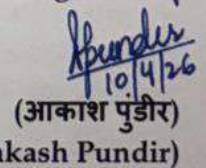 Apundir
10/4/26
(आकाश पुंडीर)
kash Pundir)